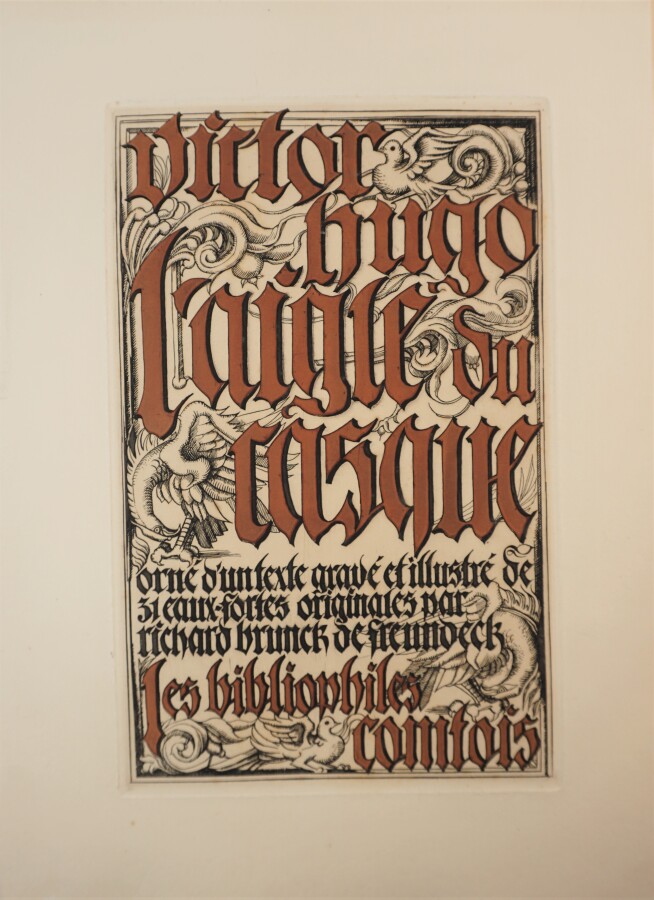 victor
hugo
l'aigle du
casque
orné d'un texte gravé et illustré de
31 eaux-fortes originales par
richard brunck de freundeck
les bibliophiles
comtois